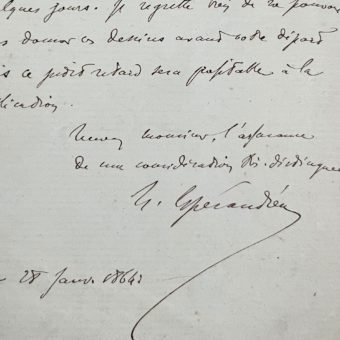 lques jours. Je regrette bien de ne pouvoir
s donner ces dessins avant votre départ
is ce petit retard sera profitable à la
lication.
Recevez monsieur, l'assurance
de ma considération très distinguée
Espérandieu
28 Janv. 1864